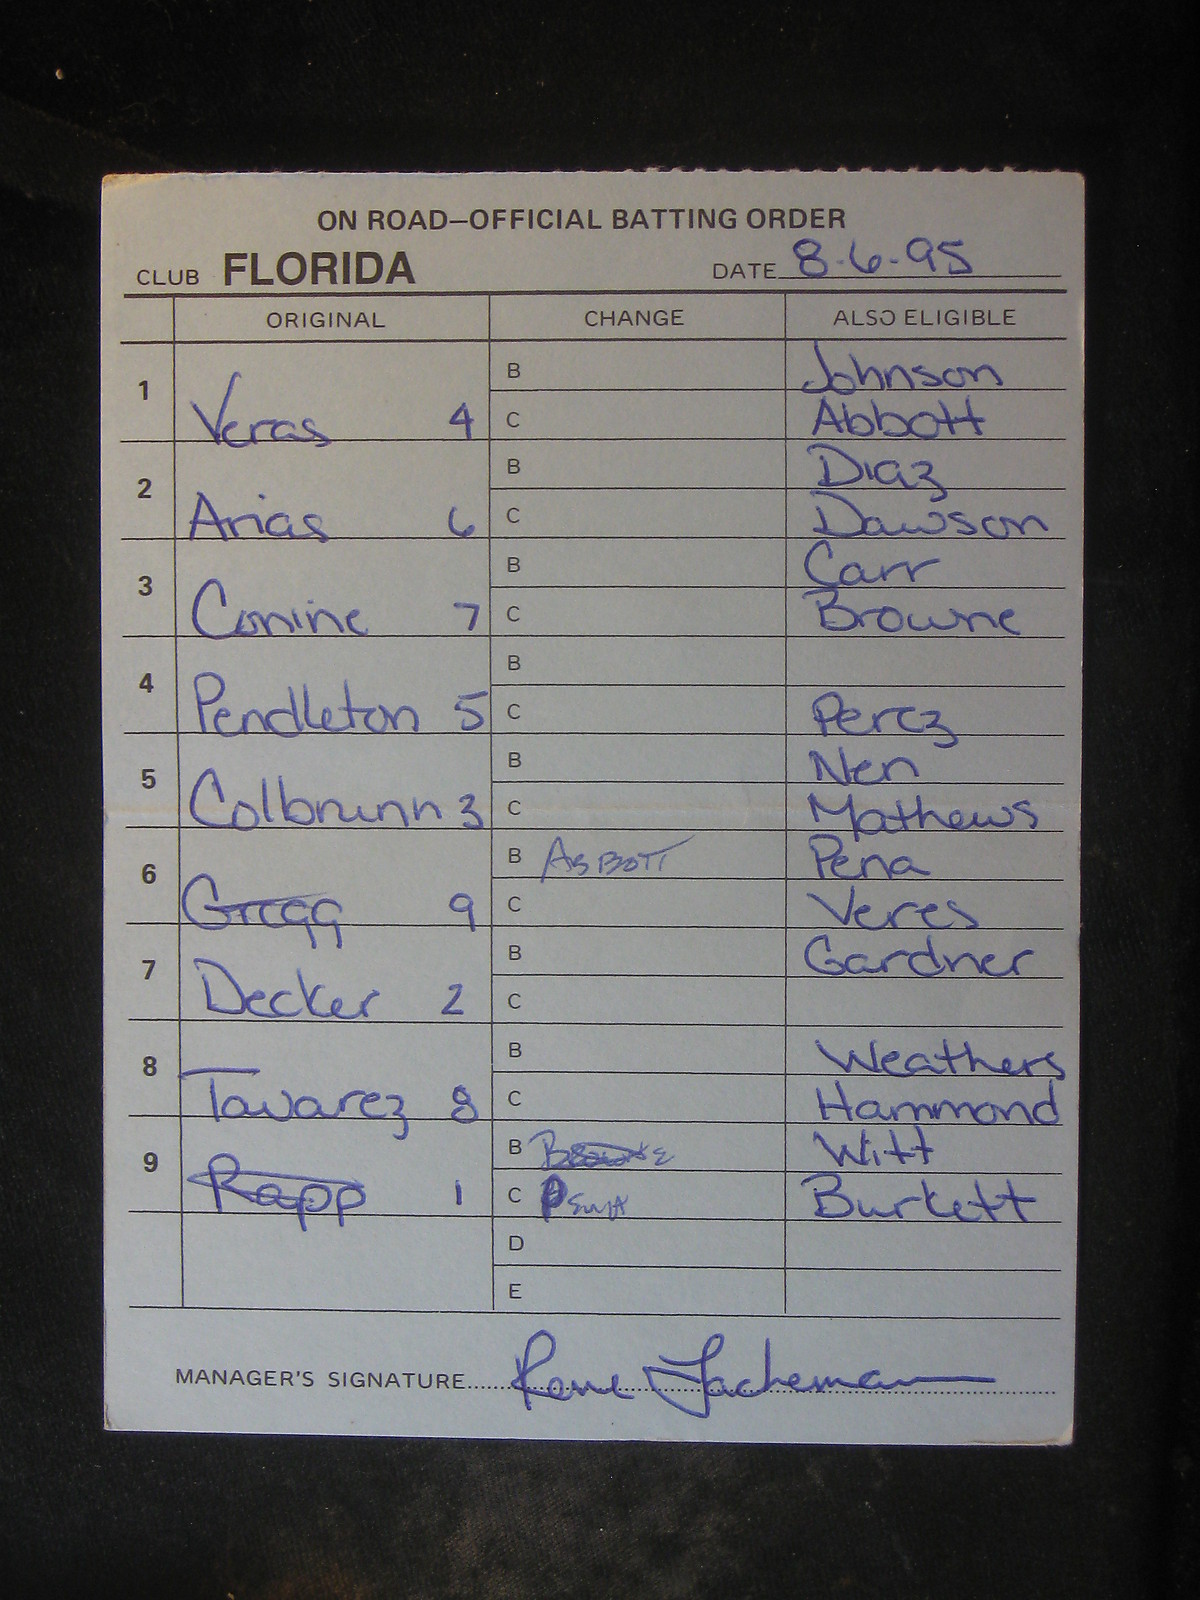 ON ROAD—OFFICIAL BATTING ORDER
CLUB FLORIDA DATE 8-6-95
ORIGINAL CHANGE ALSO ELIGIBLE
1 Veras 4 B Johnson
C Abbott
2 Arias 6 B Diaz
C Dawson
3 Conine 7 B Carr
C Browne
4 Pendleton 5 B
C Perez
5 Colbrunn 3 B Nen
C Mathews
6 Gregg 9 B ABBOTT Pena
C Veres
7 Decker 2 B Gardner
C
8 Tavarez 8 B Weathers
C Hammond
9 Rapp 1 B Witt
C Burkett
D
E
MANAGER'S SIGNATURE Rene Lachemann